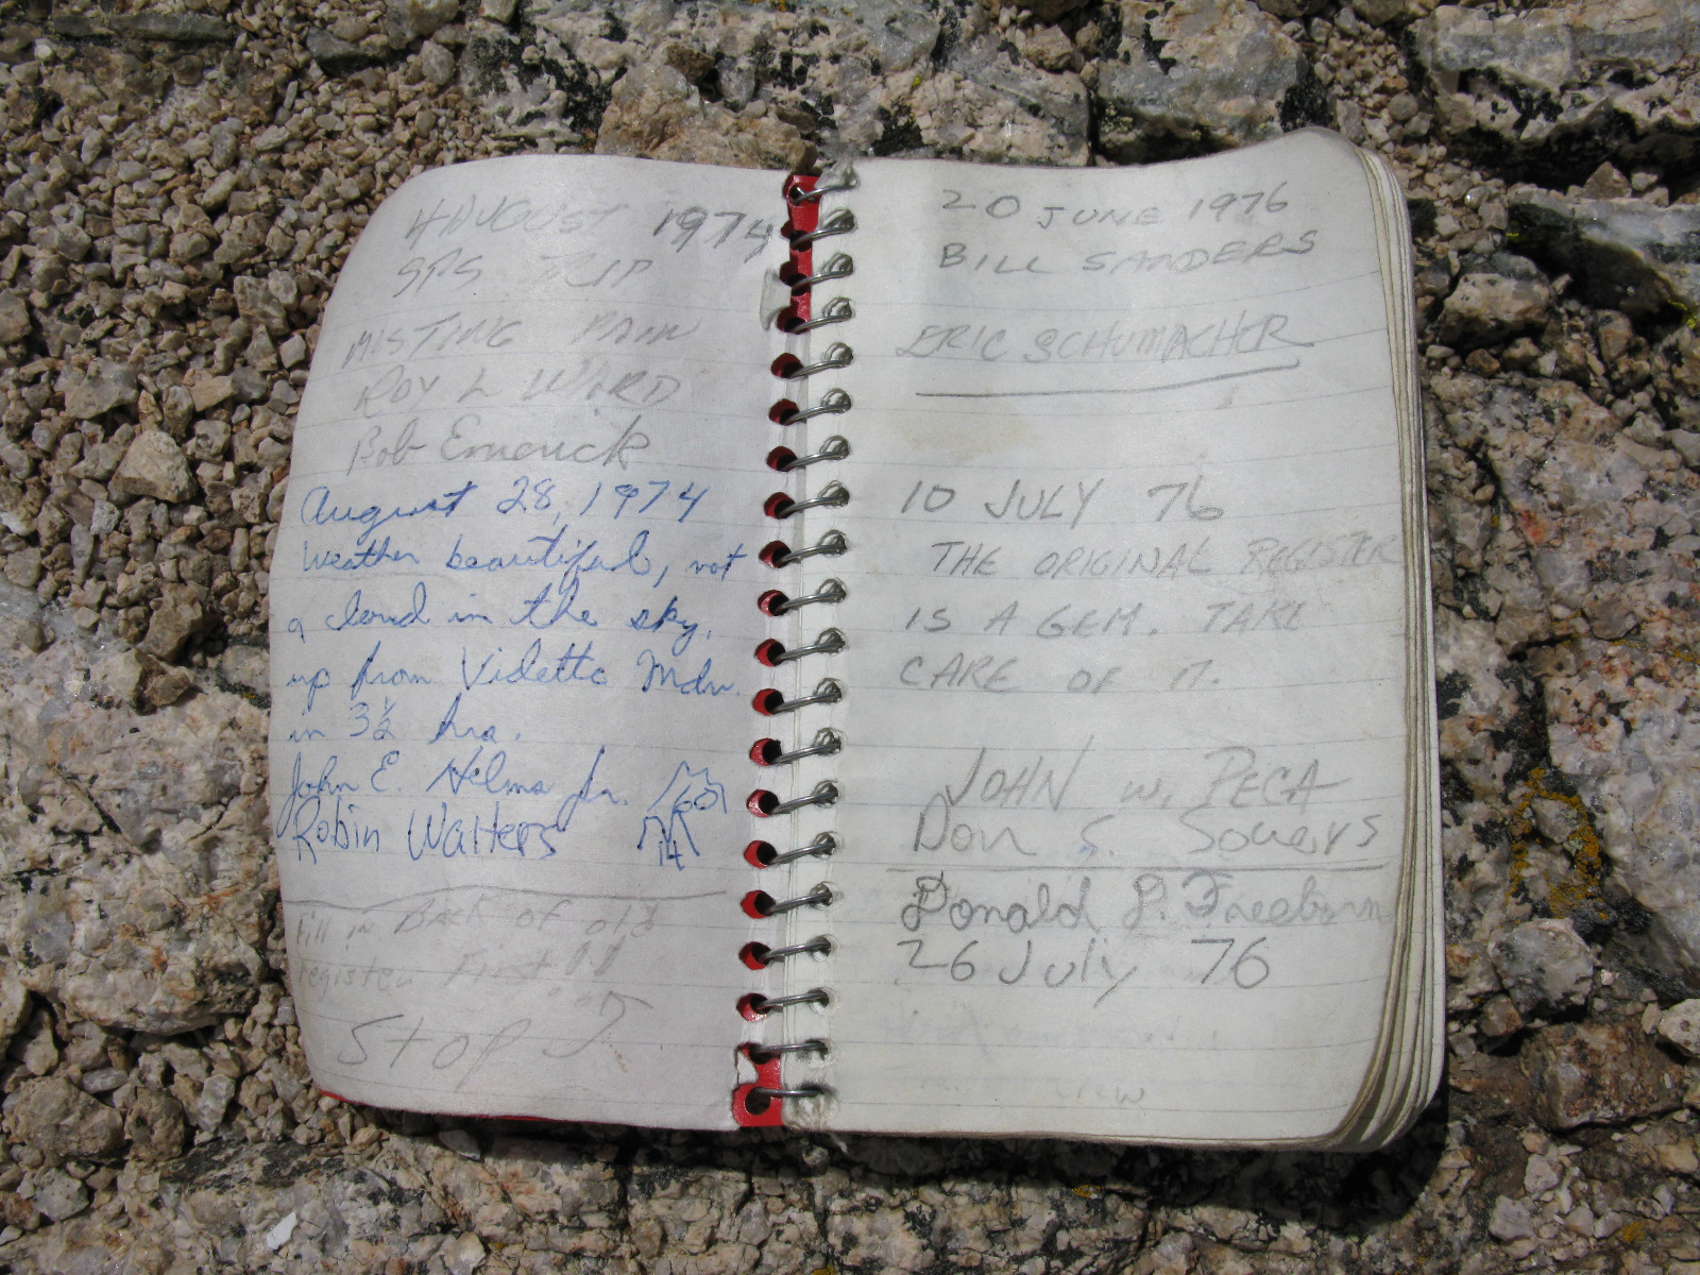 4 AUGUST 1974
SPS TRIP
MISTING RAIN
ROY L WARD
Bob Emerick
August 28, 1974
Weather beautiful, not
a cloud in the sky.
up from Vidette Mdw.
in 3½ hrs.
John E. Helms Jr.
Robin Walters
14
Fill in Back of old
register First!!
Stop
20 JUNE 1976
BILL SANDERS
ERIC SCHUMACHER
10 JULY 76
THE ORIGINAL REGISTER
IS A GEM. TAKE
CARE OF IT.
JOHN W. PECA
Don S. Souers
Donald L. Freeburn
26 July 76